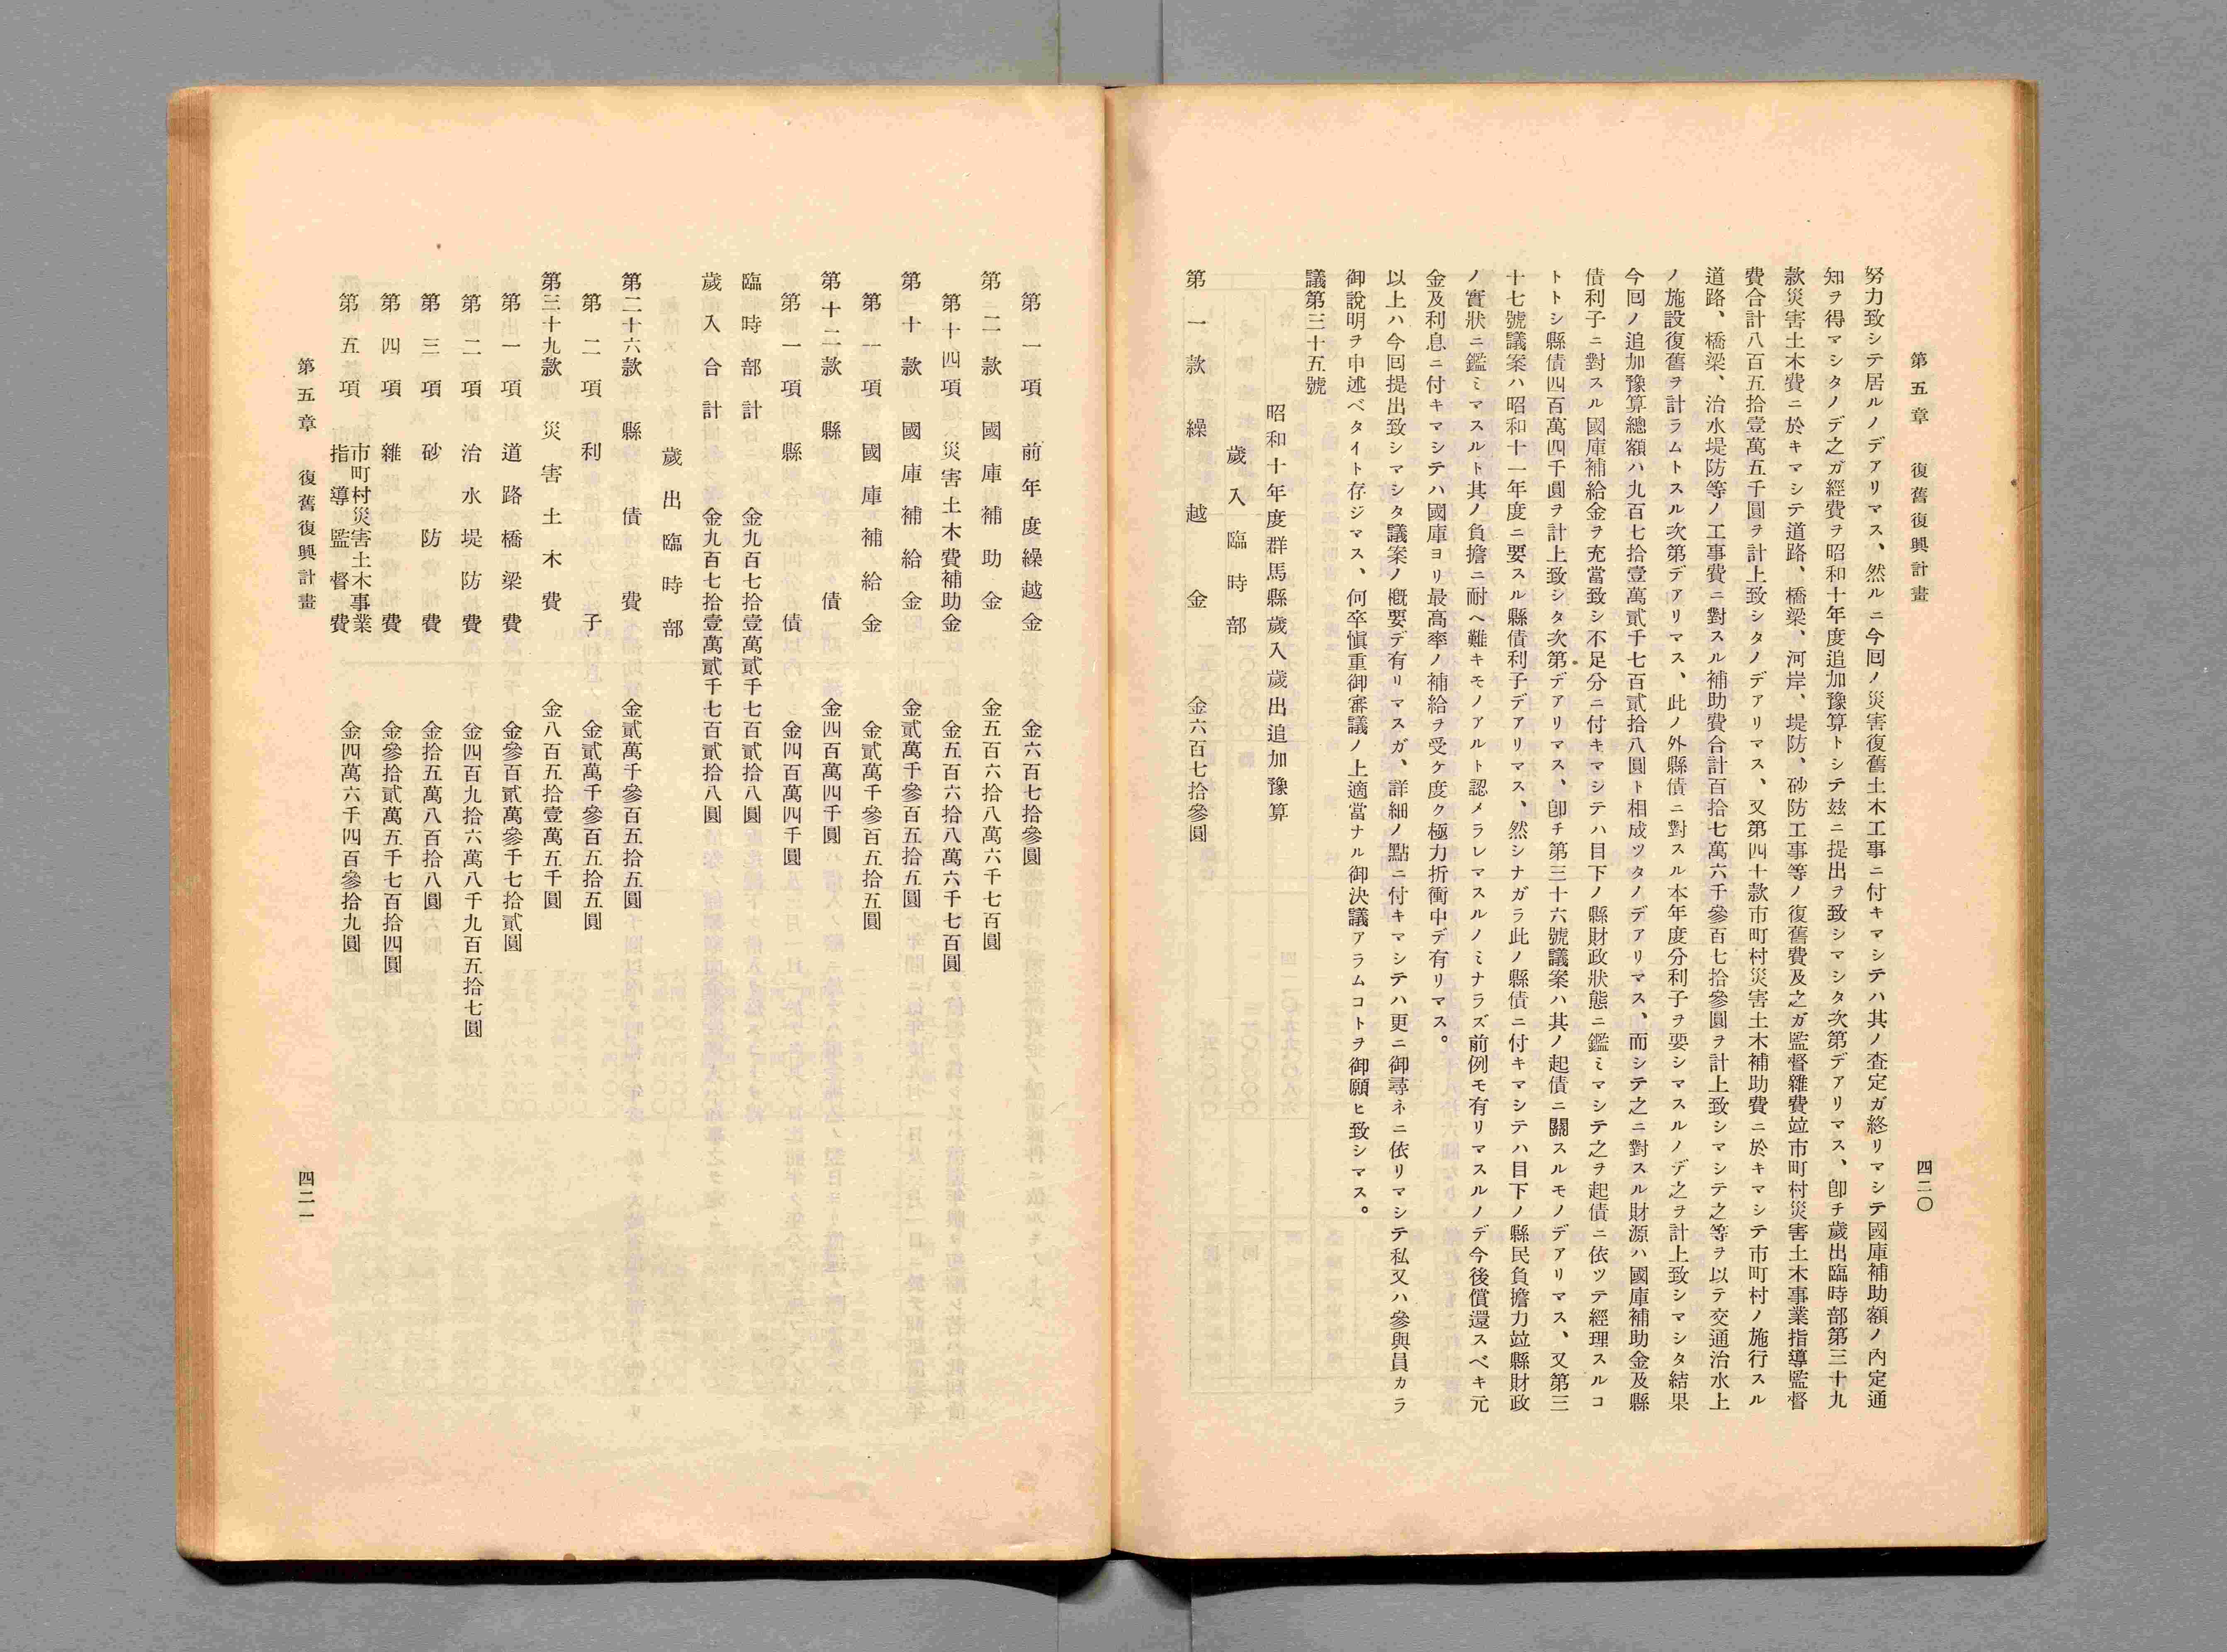 第五章　復舊復興計畫
四二〇
努力致シテ居ルノデアリマス、然ルニ今回ノ災害復舊土木工事ニ付キマシテハ其ノ査定ガ終リマシテ國庫補助額ノ內定通
知ヲ得マシタノデ之ガ經費ヲ昭和十年度追加豫算トシテ玆ニ提出ヲ致シマシタ次第デアリマス、卽チ歲出臨時部第三十九
款災害土木費ニ於キマシテ道路、橋梁、河岸、堤防、砂防工事等ノ復舊費及之ガ監督雜費竝市町村災害土木事業指導監督
費合計八百五拾壹萬五千圓ヲ計上致シタノデアリマス、又第四十款市町村災害土木補助費ニ於キマシテ市町村ノ施行スル
道路、橋梁、治水堤防等ノ工事費ニ對スル補助費合計百拾七萬六千參百七拾參圓ヲ計上致シマシテ之等ヲ以テ交通治水上
ノ施設復舊ヲ計ラムトスル次第デアリマス、此ノ外縣債ニ對スル本年度分利子ヲ要シマスルノデ之ヲ計上致シマシタ結果
今回ノ追加豫算總額ハ九百七拾壹萬貳千七百貳拾八圓ト相成ツタノデアリマス、而シテ之ニ對スル財源ハ國庫補助金及縣
債利子ニ對スル國庫補給金ヲ充當致シ不足分ニ付キマシテハ目下ノ縣財政狀態ニ鑑ミマシテ之ヲ起債ニ依ツテ經理スルコ
トトシ縣債四百萬四千圓ヲ計上致シタ次第デアリマス、卽チ第三十六號議案ハ其ノ起債ニ關スルモノデアリマス、又第三
十七號議案ハ昭和十一年度ニ要スル縣債利子デアリマス、然シナガラ此ノ縣債ニ付キマシテハ目下ノ縣民負擔力竝縣財政
ノ實狀ニ鑑ミマスルト其ノ負擔ニ耐ヘ難キモノアルト認メラレマスルノミナラズ前例モ有リマスルノデ今後償還スベキ元
金及利息ニ付キマシテハ國庫ヨリ最高率ノ補給ヲ受ケ度ク極力折衝中デ有リマス。
以上ハ今回提出致シマシタ議案ノ槪要デ有リマスガ、詳細ノ點ニ付キマシテハ更ニ御尋ネニ依リマシテ私又ハ參與員カラ
御說明ヲ申述ベタイト存ジマス、何卒愼重御審議ノ上適當ナル御決議アラムコトヲ御願ヒ致シマス。
議第三十五號
昭和十年度群馬縣歲入歲出追加豫算
歲入臨時部
第一款　繰越金　金六百七拾參圓
第一項　前年度繰越金　金六百七拾參圓
第二款　國庫補助金　金五百六拾八萬六千七百圓
第十四項　災害土木費補助金　金五百六拾八萬六千七百圓
第十款　國庫補給金　金貳萬千參百五拾五圓
第一項　國庫補給金　金貳萬千參百五拾五圓
第十二款　縣債　金四百萬四千圓
第一項　縣債　金四百萬四千圓
臨時部計　金九百七拾壹萬貳千七百貳拾八圓
歲入合計　金九百七拾壹萬貳千七百貳拾八圓
歲出臨時部
第二十六款　縣債費　金貳萬千參百五拾五圓
第二項　利子　金貳萬千參百五拾五圓
第三十九款　災害土木費　金八百五拾壹萬五千圓
第一項　道路橋梁費　金參百貳萬參千七拾貳圓
第二項　治水堤防費　金四百九拾六萬八千九百五拾七圓
第三項　砂防費　金拾五萬八百拾八圓
第四項　雜費　金參拾貳萬五千七百拾四圓
第五項　市町村災害土木事業指導監督費　金四萬六千四百參拾九圓
第五章　復舊復興計畫
四二一